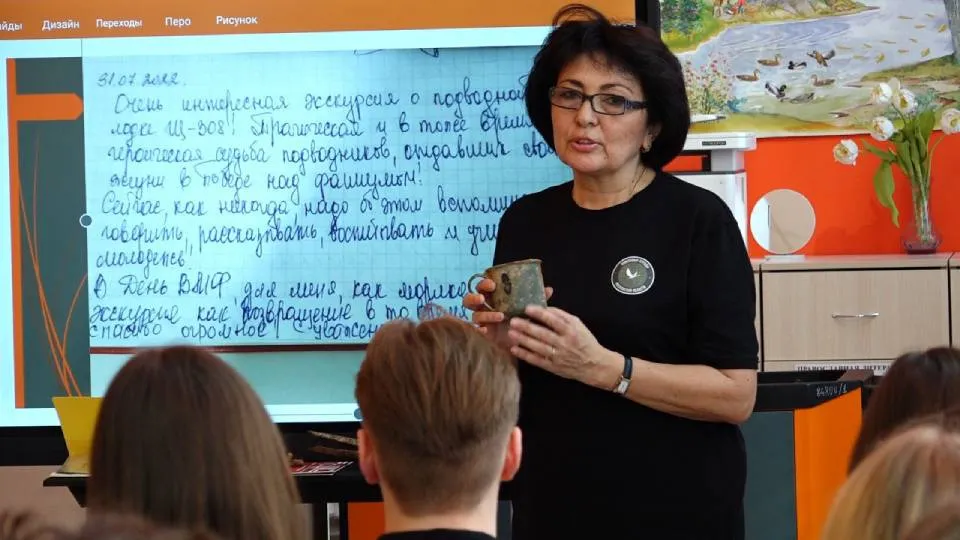 йды Дизайн Переходы Перо Рисунок
31.07.2022.
Очень интересная экскурсия о подводной
лодке Щ-308! Трагическая и в тоже время
героическая судьба подводников, отдавших свои
жизни в победе над фашизмом!
Сейчас, как никогда, надо об этом вспоминать
говорить, рассказывать, воспитывать и
молодежь.
В День ВМФ, для меня, как моряка
экскурсия как возвращение в то время
спасибо огромное с уважением
ПРАВОСЛАВНАЯ ЛИТЕРА